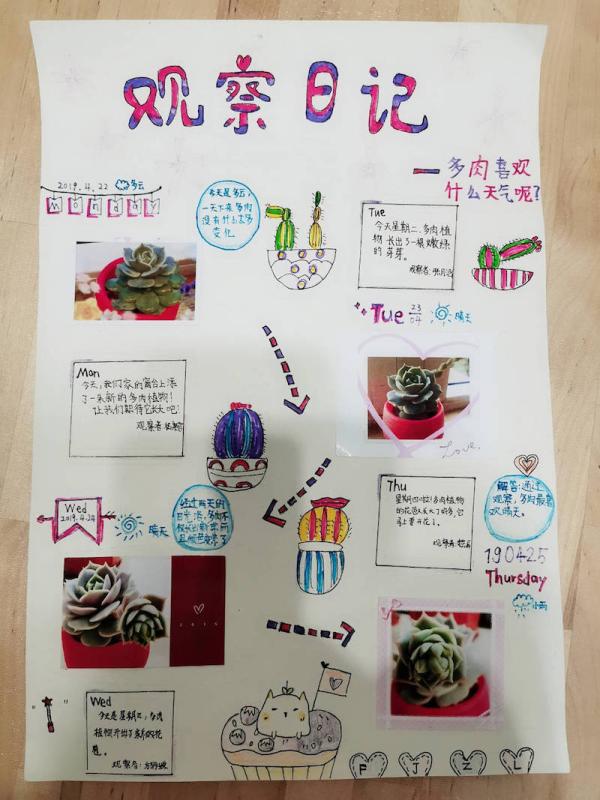 观察日记
多肉喜欢
什么天气呢?
2019.4.22 多云
Monday
今天是多云,
一天下来多肉
没有什么太多
变化.
Mon
今天,我们家的窗台上添
了一朵新的多肉植物!
让我们期待它长大吧!
观察者:
Tue
今天星期二,多肉植
物长出了一根嫩绿
的芽芽。
观察者:
Tue 23 04 晴天
Love.
Wed
2019.4.24
晴天
2019
Wed
今天是星期三,多肉
植物开出了新的花
苞。
观察者:
Thu
星期四啦!多肉植物
的花苞又长大了好多,它
马上要开花了。
观察者:
解答:通过
观察,多肉最喜
欢晴天。
190425
Thursday
小雨
F J Z L